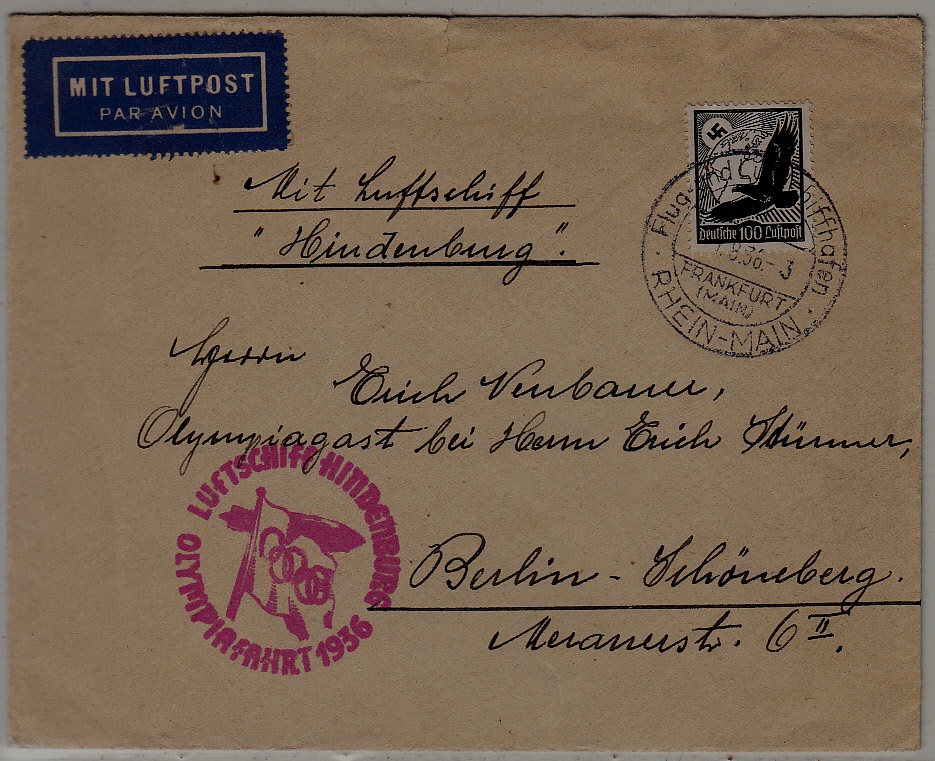 MIT LUFTPOST
PAR AVION
Mit Luftschiff
"Hindenburg".
Deutsche 100 Luftpost
Flug- und Luftschiffhafen
8.36.-3
FRANKFURT
(MAIN)
RHEIN-MAIN
Herrn
Erich Neubauer,
Olympiagast bei Herrn Erich Stürmer,
LUFTSCHIFF HINDENBURG
OLYMPIAFAHRT 1936
Berlin-Schöneberg.
Meranerstr. 6 II.